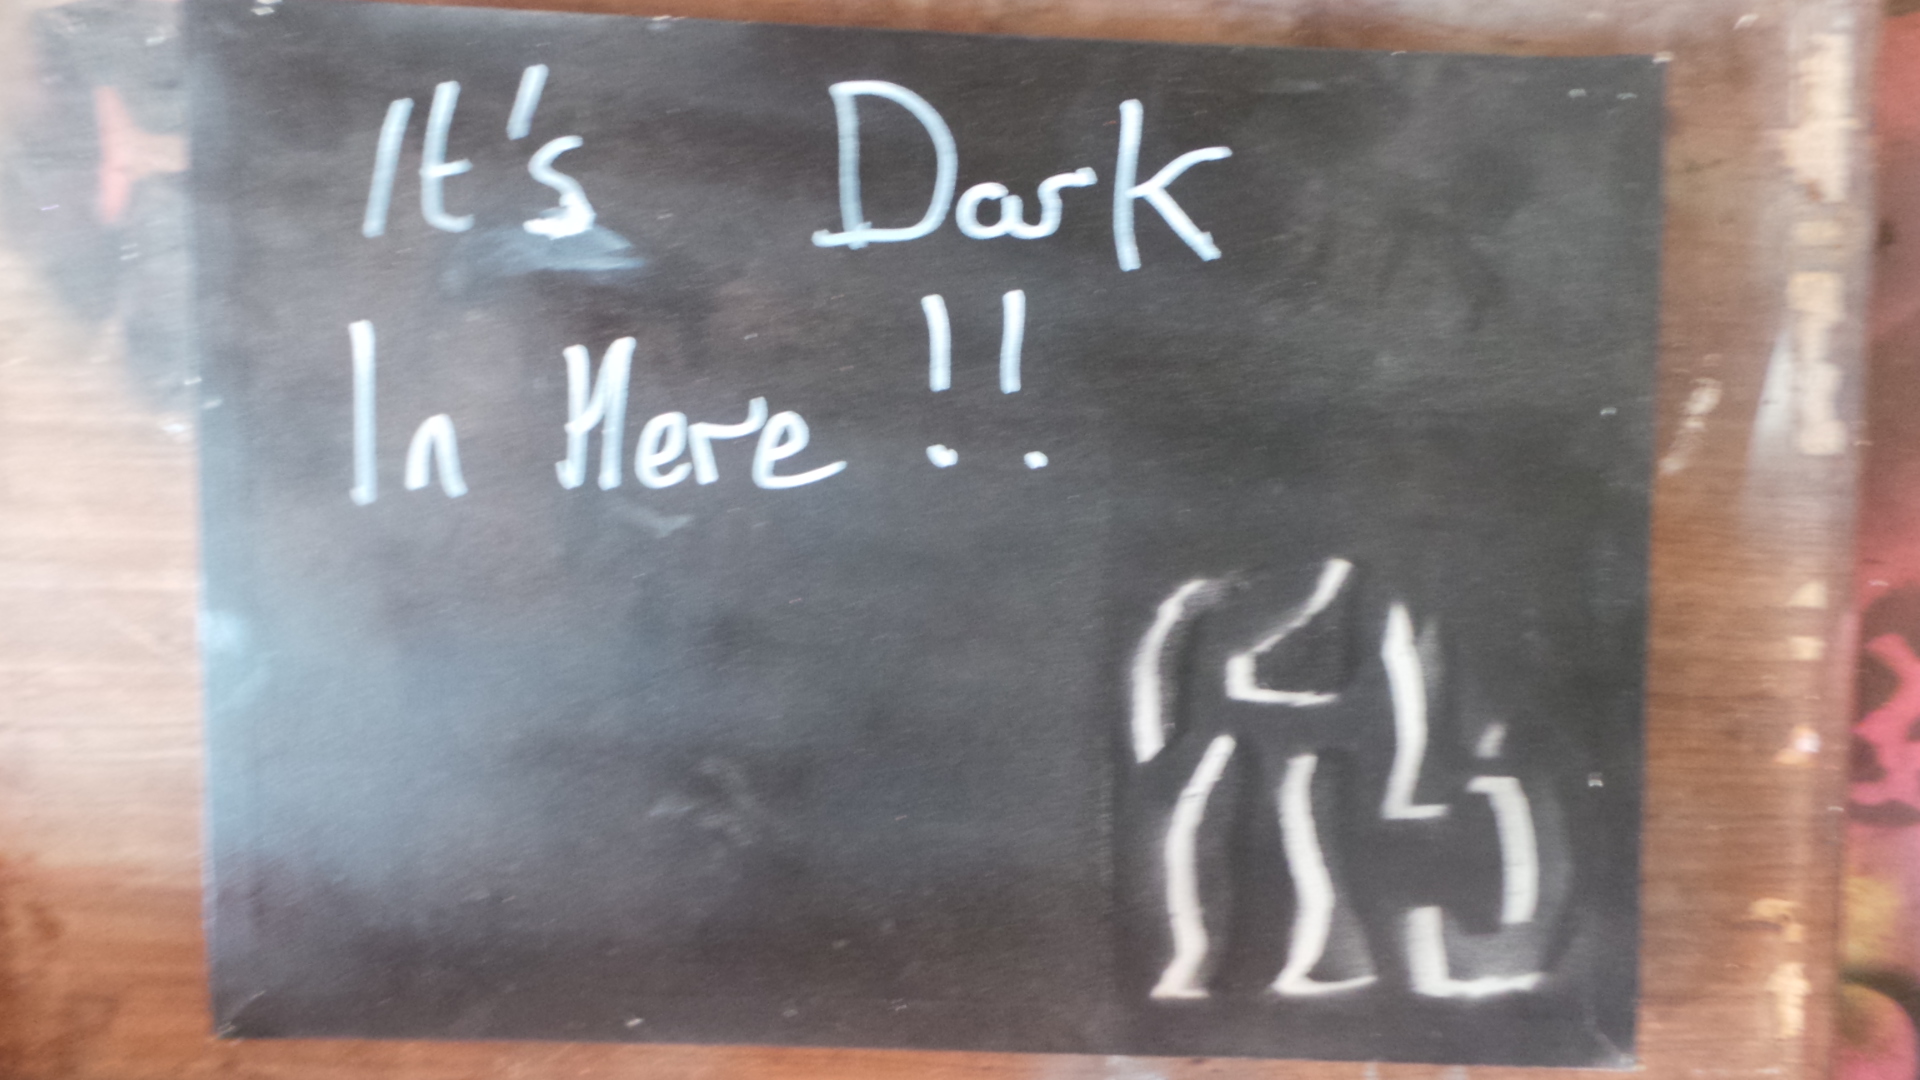 It's Dark
In Here !!